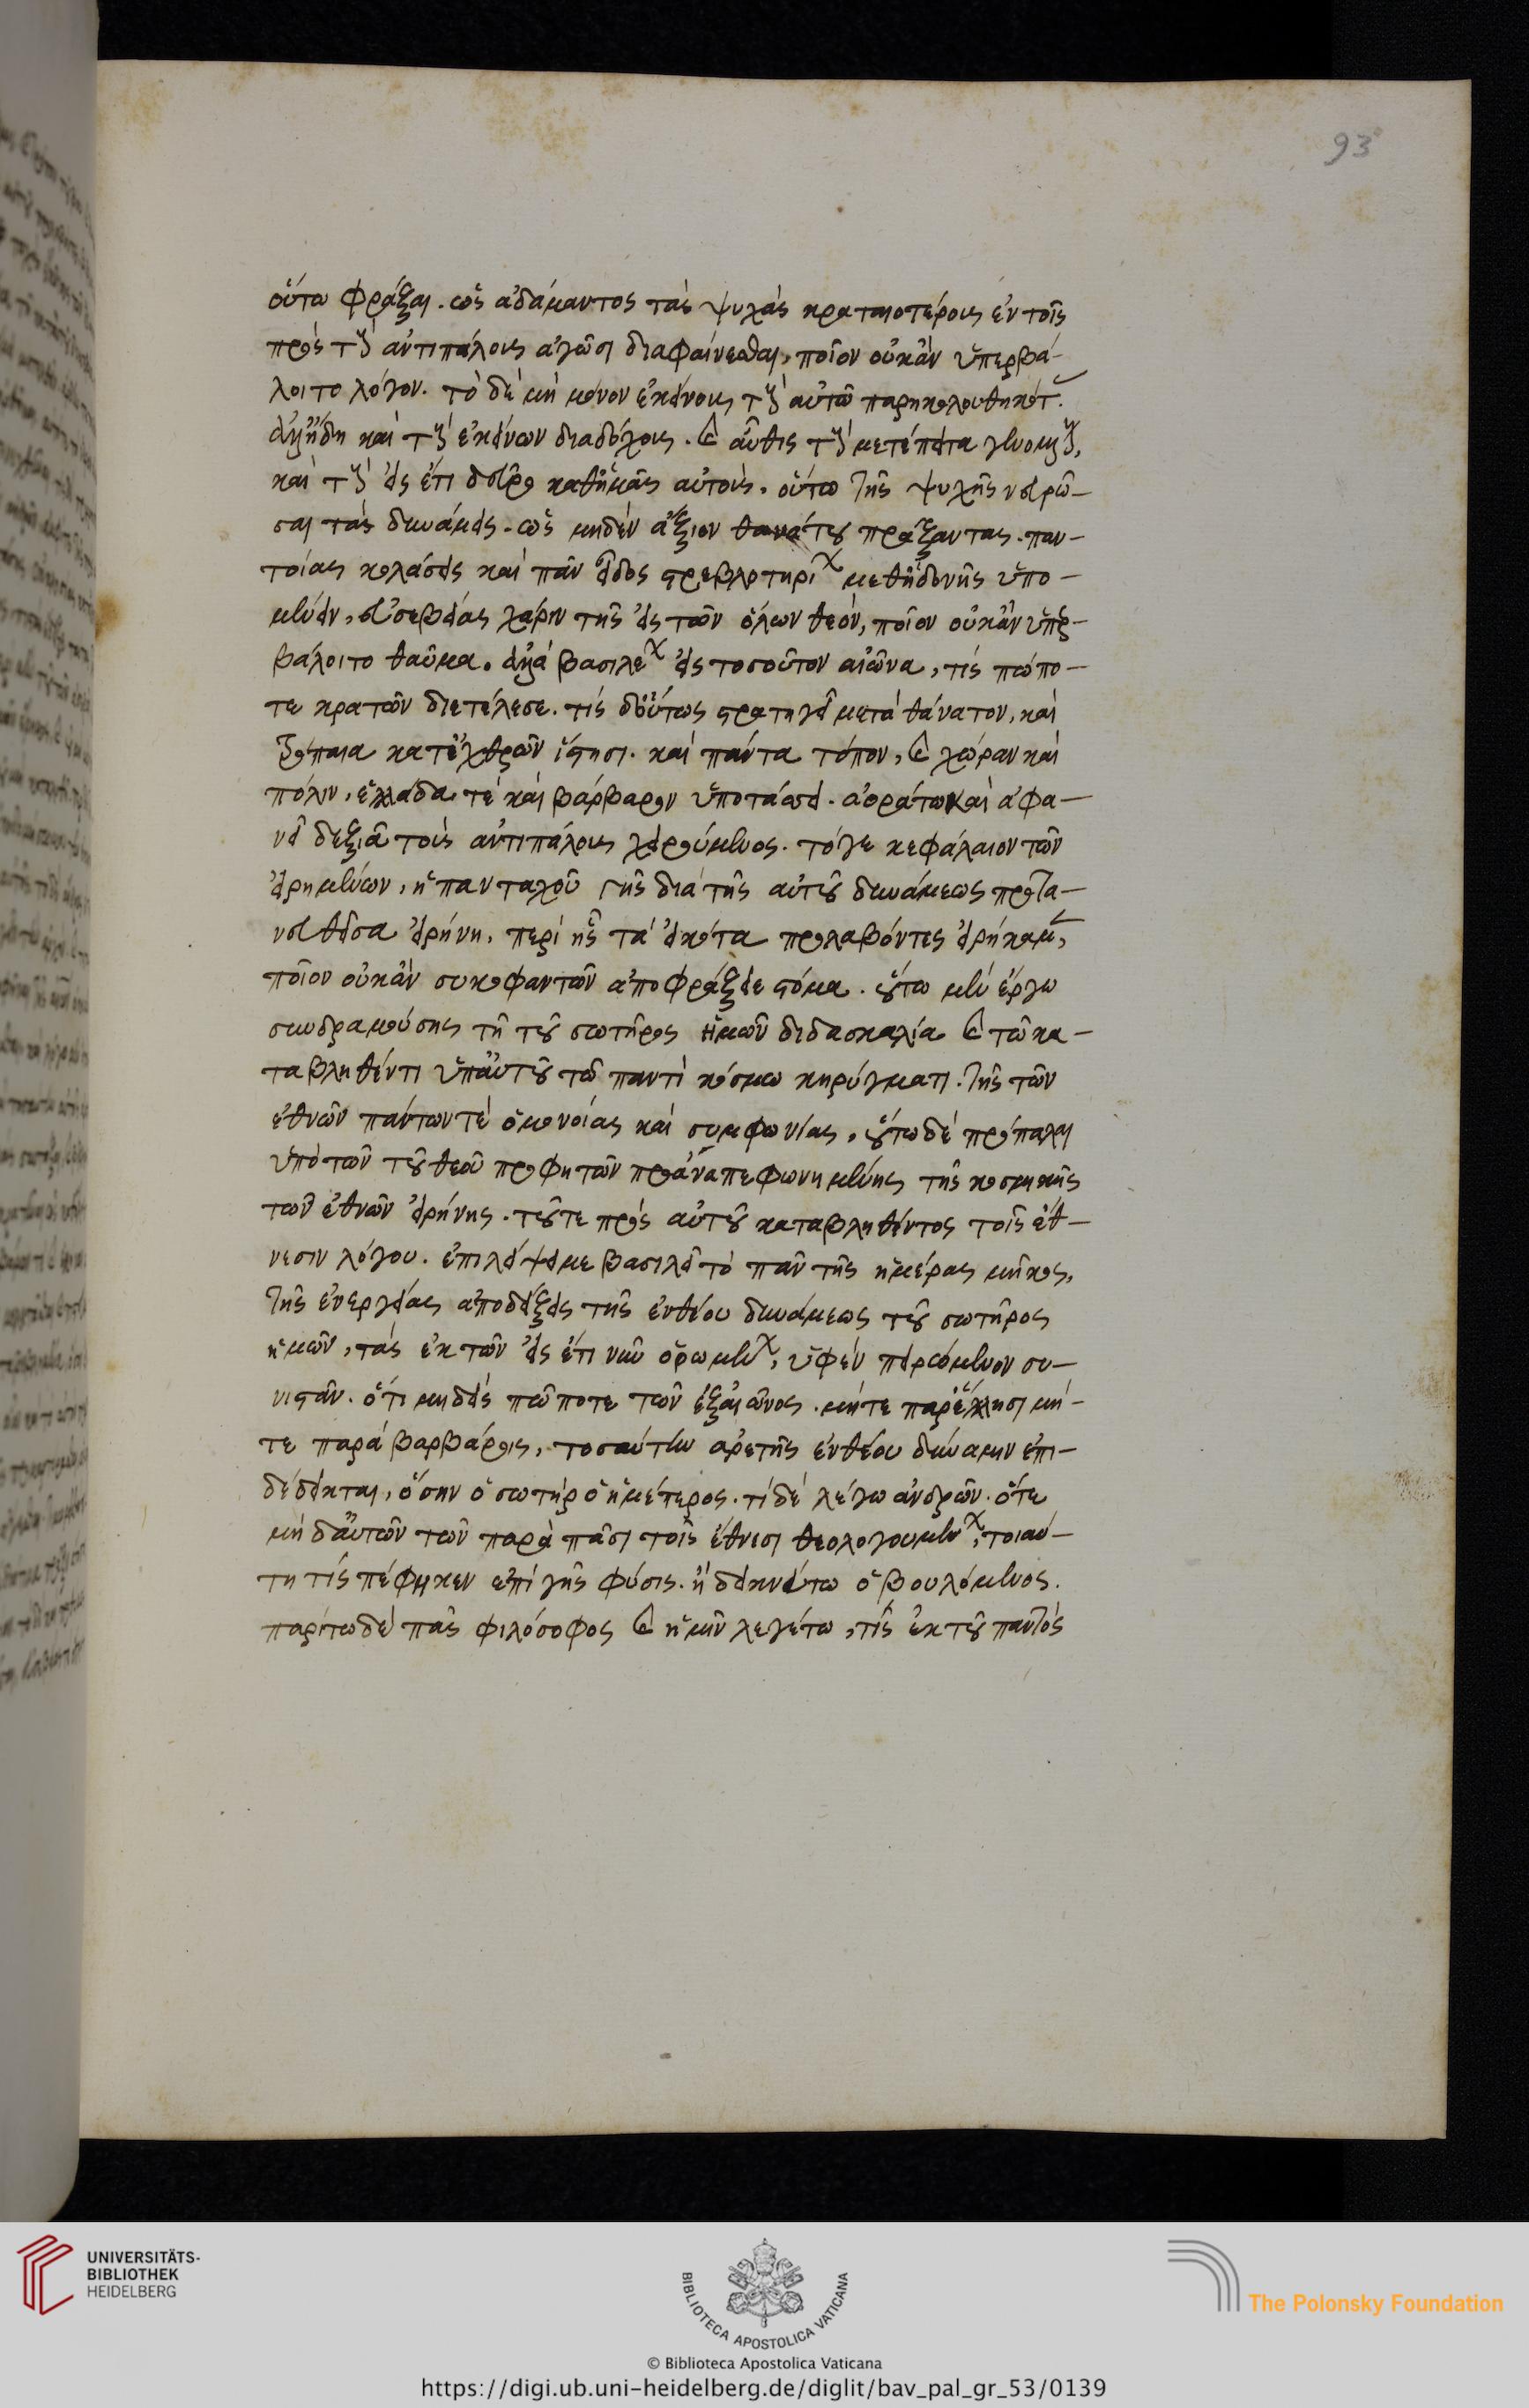 93
οὕτω φράξαι. ὡς ἀδάμαντος τὰς ψυχὰς κραταιοτέρους ἐν τοῖς
πρὸς τοὺς ἀντιπάλους ἀγῶσι διαφαίνεσθαι, ποῖον οὐκἂν ὑπερβά-
λοιτο λόγον. τὸ δὲ μὴ μόνον ἐκείνους τοὺς αὐτῶ παρηκολουθηκότας.
ἀλλήδη καὶ τοὺς ἐκείνων διαδόχους. καὶ αὖθις τοὺς μετέπειτα γενομένους,
καὶ τοὺς εἰς ἔτι δεῦρο καθἡμᾶς αὐτοὺς. οὕτω τῆς ψυχῆς νευρῶ-
σαι τὰς δυνάμεις. ὡς μηδὲν ἄξιον θανάτου πράξαντας. παν-
τοίας κολάσεις καὶ πᾶν εἶδος στρεβλωτηρίων μεθἡδονῆς ὑπο-
μένειν, εὐσεβείας χάριν τῆς εἰς τῶν ὅλων θεὸν, ποῖον οὐκἂν ὑπερ-
βάλοιτο θαῦμα. ἀλλὰ βασιλέων εἰς τοσοῦτον αἰῶνα, τίς πώπο-
τε κρατῶν διετέλεσε. τίς δοὕτως στρατηγεῖ μετὰ θάνατον, καὶ
τρόπαια κατἐχθρῶν ἵστησι. καὶ πάντα τόπον, καὶ χώραν καὶ
πόλιν, ἑλλάδα τὲ καὶ βάρβαρον ὑποτάσσει. ἀοράτω καὶ ἀφα-
νεῖ δεξιᾶ τοὺς ἀντιπάλους χειρούμενος. τόγε κεφάλαιον τῶν
εἰρημένων, ἡ πανταχοῦ γῆς διὰ τῆς αὐτοῦ δυνάμεως πρυτα-
νευθεῖσα εἰρήνη, περὶ ἧς τὰ εἰκότα προλαβόντες εἰρήκαμεν,
ποῖον οὐκἂν συκοφαντῶν ἀποφράξειε στόμα. οὕτω μὲν ἔργω
συνδραμούσης τῆ τοῦ σωτῆρος ἡμῶν διδασκαλία καὶ τῶ κα-
ταβληθέντι ὑπαὐτοῦ τῶ παντὶ κόσμω κηρύγματι. τῆς τῶν
ἐθνῶν πάντων τὲ ὁμονοίας καὶ συμφωνίας, οὕτω δὲ πρόπαλαι
ὑπὸ τῶν τοῦ θεοῦ προφητῶν προαναπεφωνημένης τῆς κοσμικῆς
τῶν ἐθνῶν εἰρήνης. τοῦ τε πρὸς αὐτοῦ καταβληθέντος τοῖς ἔθ-
νεσιν λόγου. ἐπιλείψει με βασιλεῦ τὸ πᾶν τῆς ἡμέρας μῆκος,
τῆς ἐνεργείας ἀποδείξεις τῆς ἐνθέου δυνάμεως τοῦ σωτῆρος
ἡμῶν, τὰς ἐκ τῶν εἰς ἔτι νῦν ὁρωμένων, ὑφὲν πειρώμενον συ-
νιστᾶν. ὅτι μηδεὶς πώποτε τῶν ἐξαἰῶνος. μήτε παρἕλλησι μή-
τε παρὰ βαρβάροις, τοσαύτην ἀρετῆς ἐνθέου δύναμιν ἐπι-
δέδεικται, ὅσην ὁ σωτὴρ ὁ ἡμέτερος. τί δὲ λέγω ἀνδρῶν. ὅτε
μὴ δαὐτῶν τῶν παρὰ πᾶσι τοῖς ἔθνεσι θεολογουμένων, τοιαύ-
τη τίς πέφηκεν ἐπὶ γῆς φύσις. ἢ δεικνύτω ὁ βουλόμενος.
παρίτω δὲ πᾶς φιλόσοφος καὶ ἡμῖν λεγέτω, τίς ἐκ τοῦ παντὸς
UNIVERSITÄTS-
BIBLIOTHEK
HEIDELBERG
BIBLIOTECA APOSTOLICA VATICANA
© Biblioteca Apostolica Vaticana
The Polonsky Foundation
https://digi.ub.uni-heidelberg.de/diglit/bav_pal_gr_53/0139